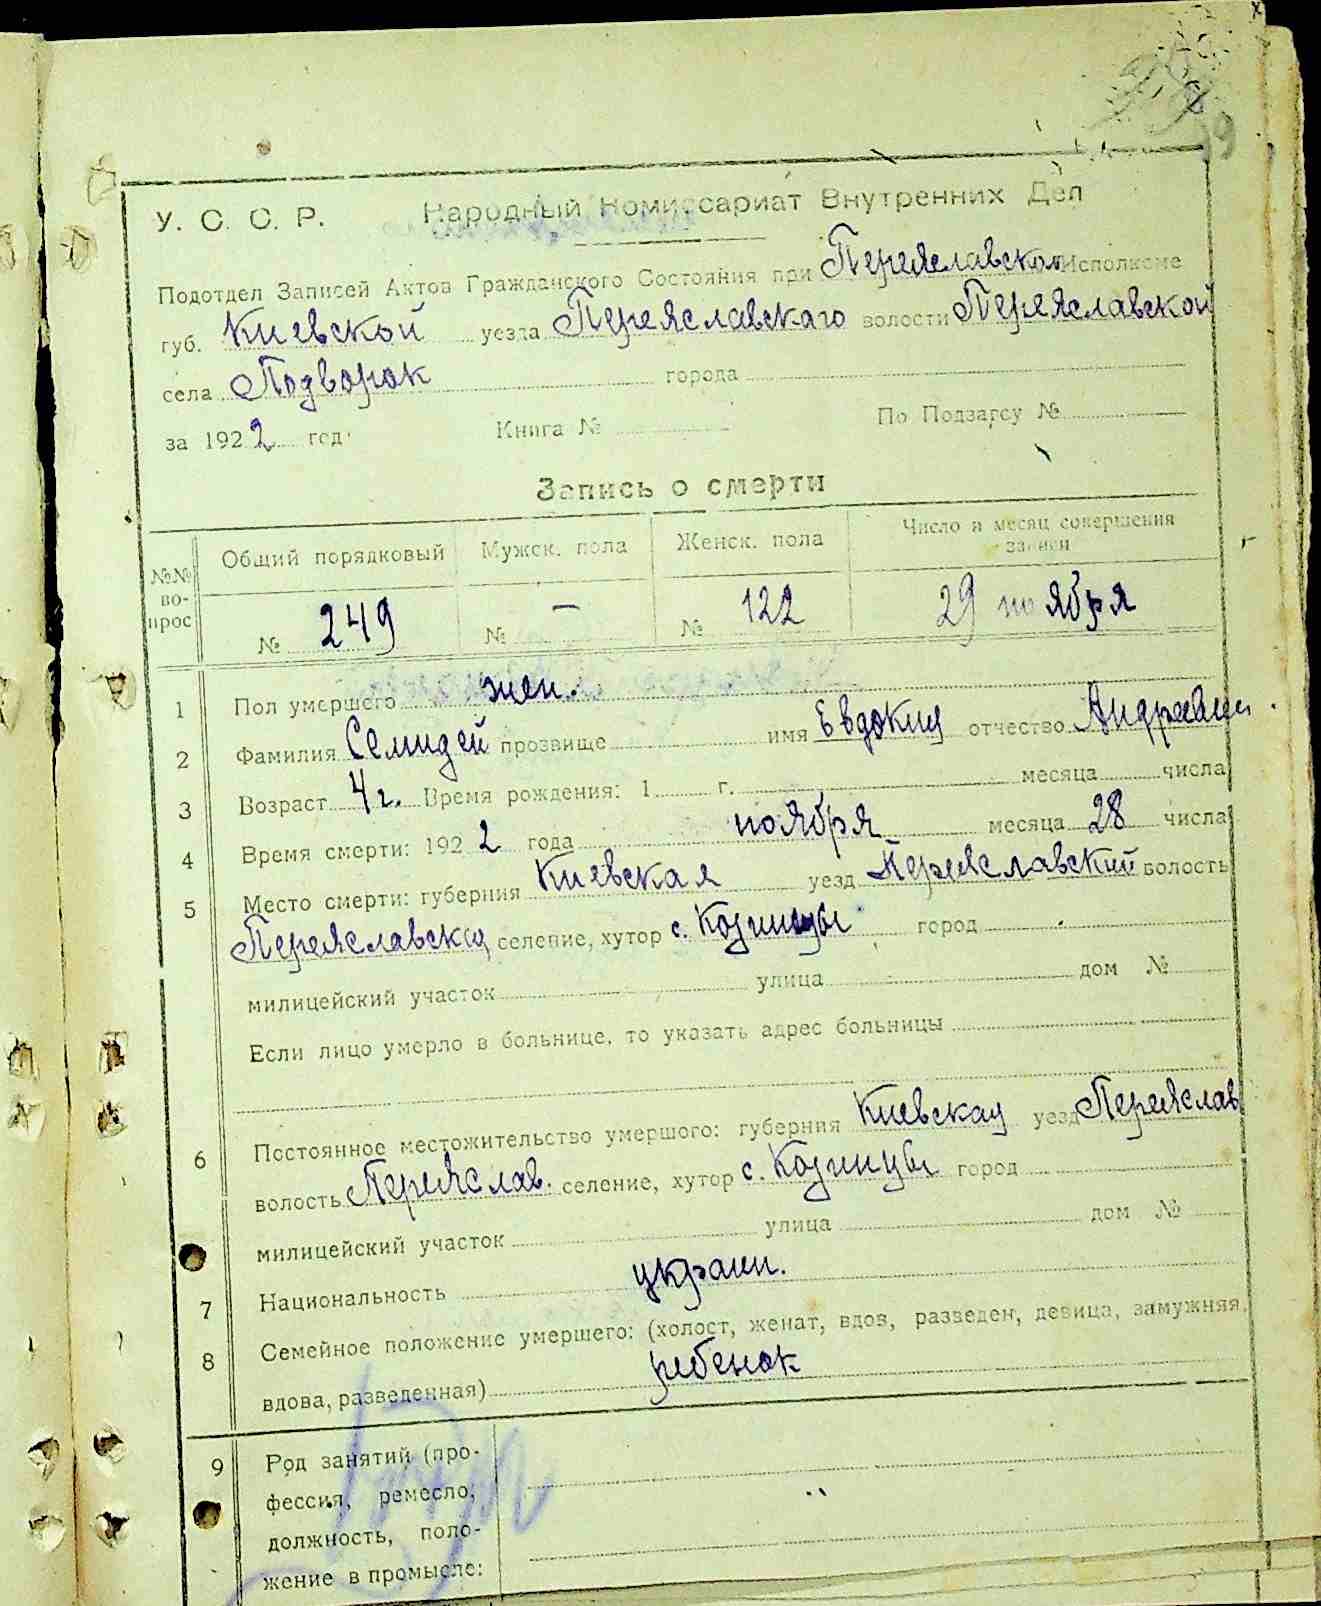 19
У. С. С. Р. Народный Комиссариат Внутренних Дел
Подотдел Записей Актов Гражданского Состояния при Переяславском Исполкоме
губ. Киевской уезда Переяславскаго волости Переяславской
села Подворок города
за 1922 год Книга № По Подзагсу №
Запись о смерти
№№ вопрос Общий порядковый Мужск. пола Женск. пола Число и месяц совершения записи
№ 249 № — № 122 29 ноября
1 Пол умершего жен.
2 Фамилия Семидей прозвище имя Евдокия отчество
3 Возраст 4 г. Время рождения: 1 г. месяца числа
4 Время смерти: 1922 года ноября месяца 28 числа
5 Место смерти: губерния Киевская уезд Переяславский волость
Переяславская селение, хутор с. Козинцы город
милицейский участок улица дом №
Если лицо умерло в больнице, то указать адрес больницы
6 Постоянное местожительство умершого: губерния Киевская уезд Переяслав
волость Переяслав. селение, хутор с. Козинцы город
милицейский участок улица дом №
7 Национальность украин.
8 Семейное положение умершего: (холост, женат, вдов, разведен, девица, замужняя,
вдова, разведенная) ребенок
9 Род занятий (про-
фессия, ремесло,
должность, поло-
жение в промысле: